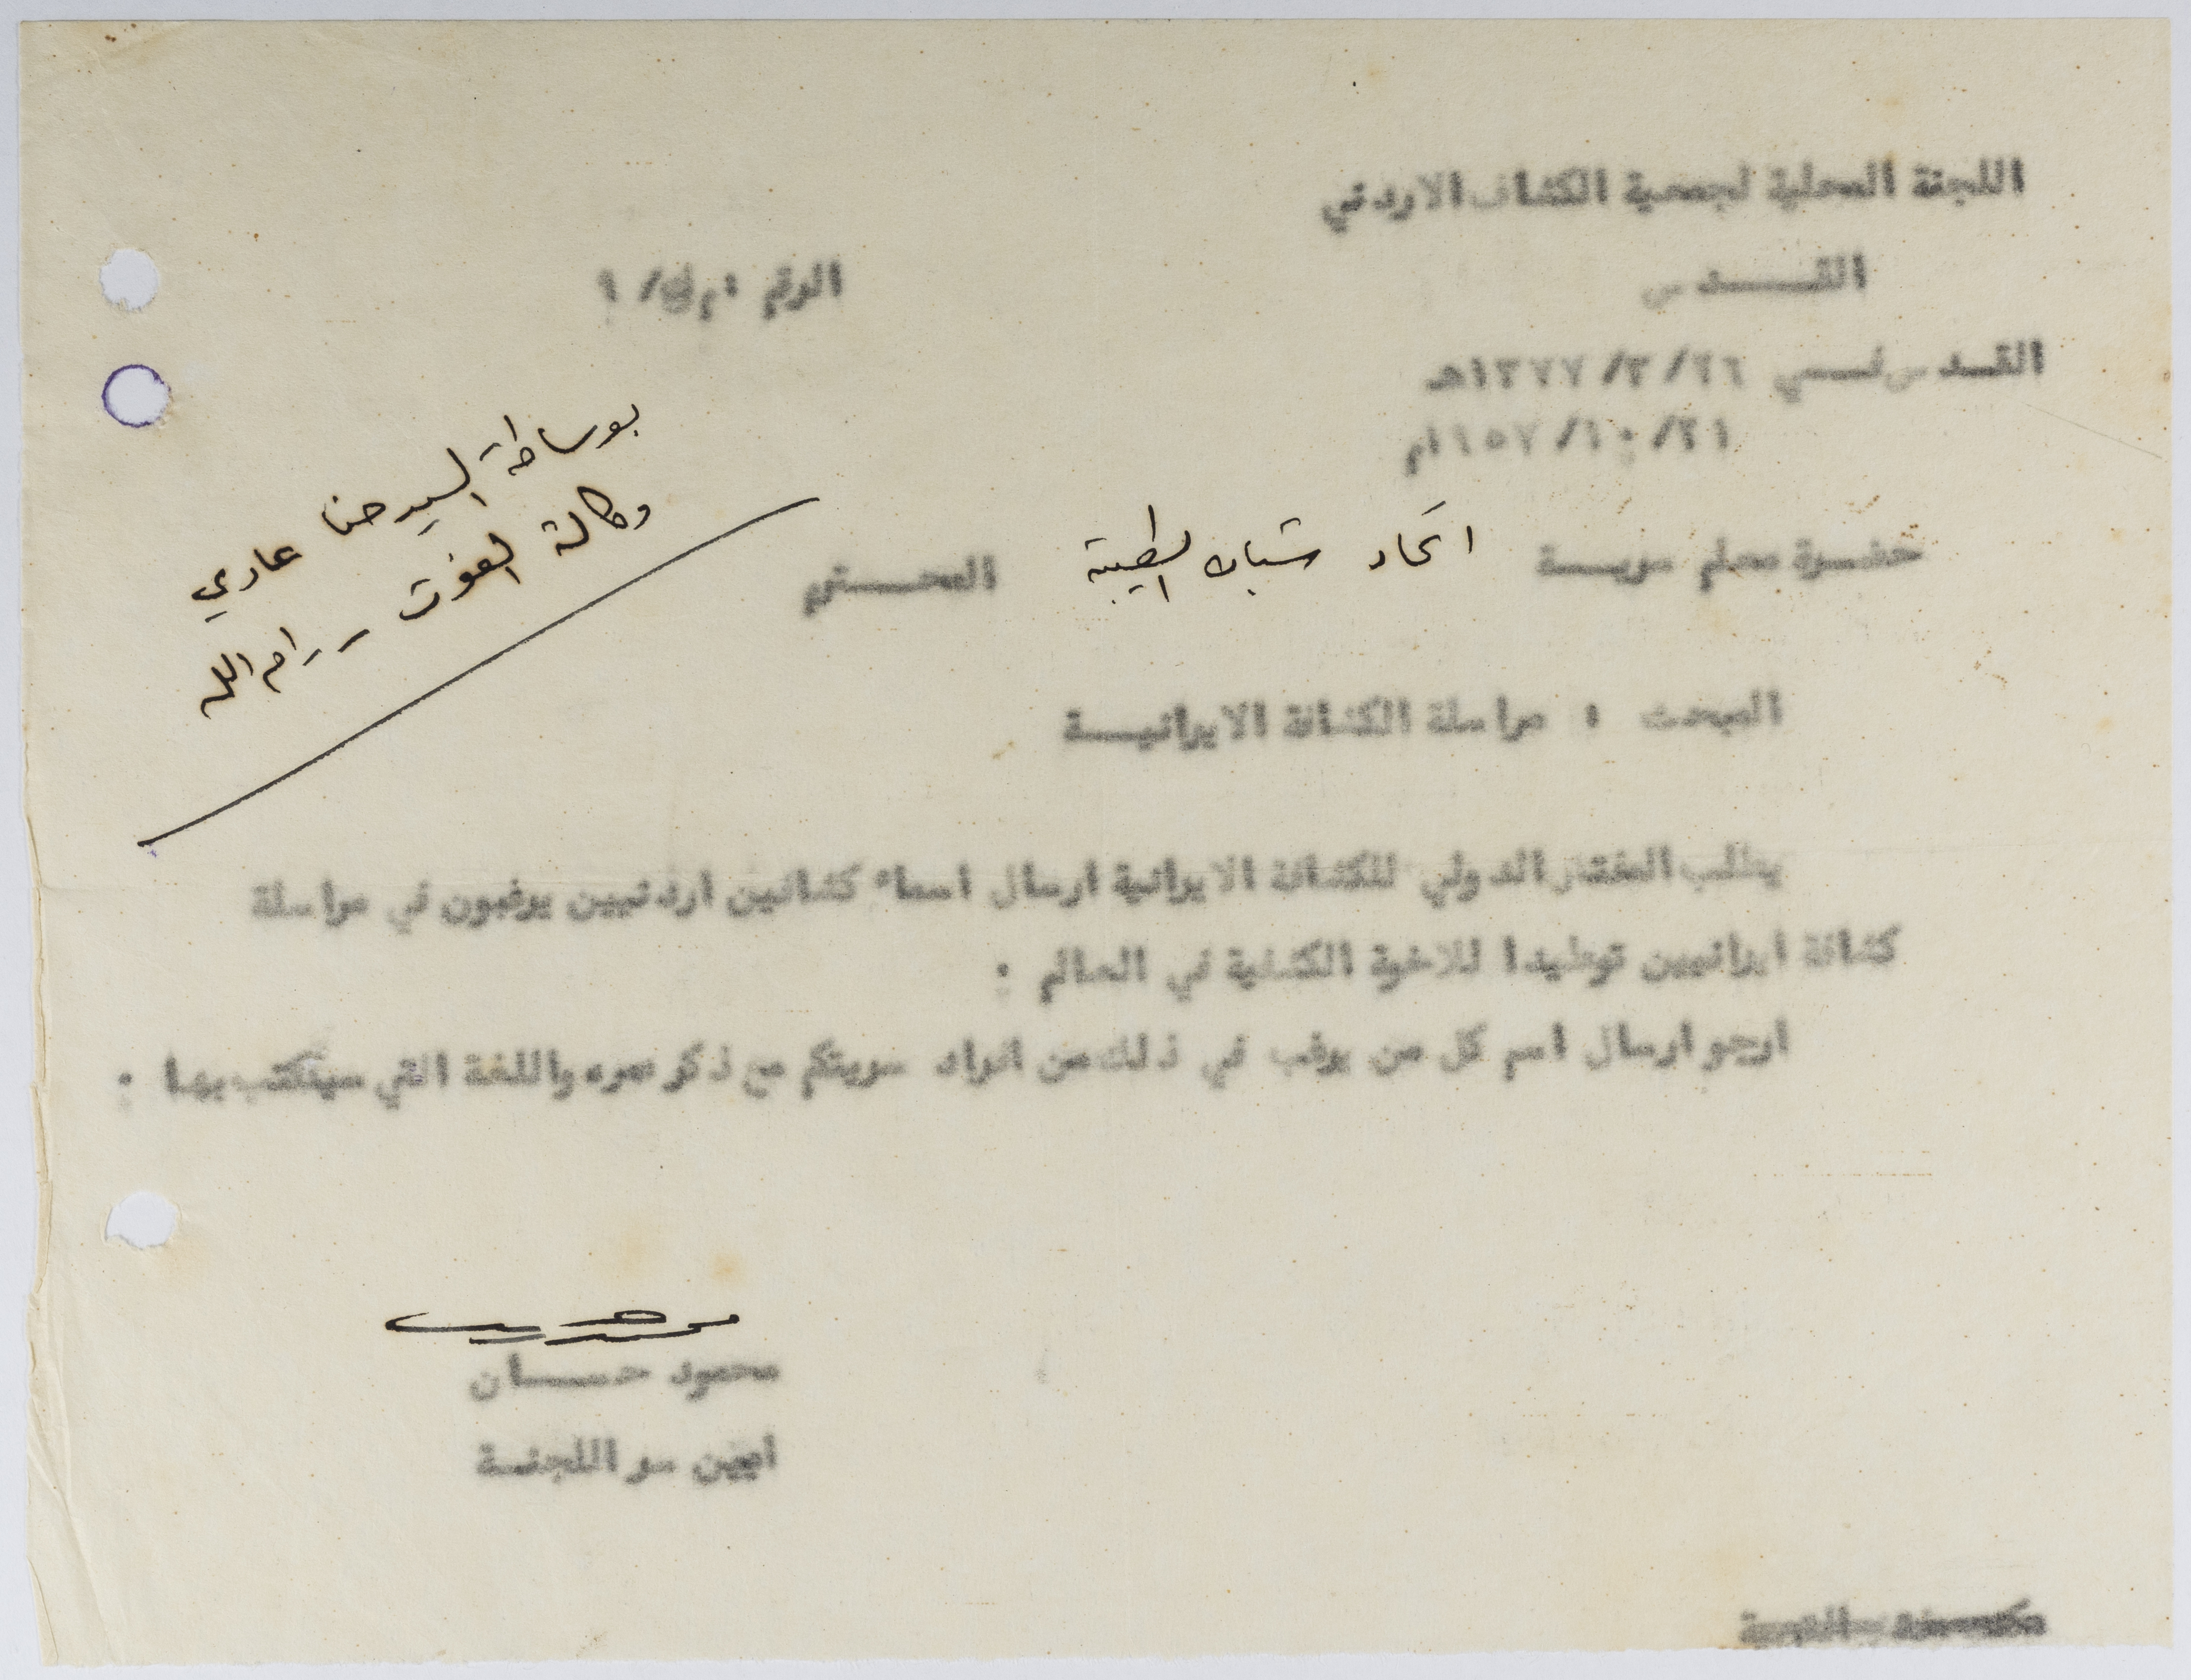 اللجنة المحلية لجمعية الكشاف الاردني
القـــــدس
الرقم
القـدس فـــي ٢٦/ ٣/ ١٣٧٧هـ
٢١/ ١٠/ ١٩٥٧م
بوساطة السيد حنا عاري
وكالة الغوث - رام الله
حضـرة معلم سريـــة اتحاد شباب الطيبة المحـــترم
المبحث : مراسلة الكشافة الايرانيــة
يطلب المفتش الدولي للكشافة الايرانية ارسال اسماء كشافين اردنيين يرغبون في مراسلة
كشافة ايرانيين توطيدا للاخوة الكشفية في العالم :
ارجو ارسال اسم كل من يرغب في ذلك من افراد سريتكم مع ذكر عمره واللغة التي سيكتب بها :
محمود حســـان
امين سر اللجنـة